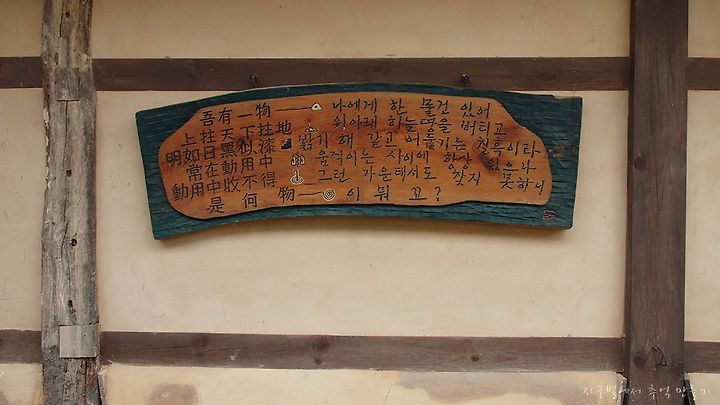 吾有一物 나에게 한 물건 있어
上拄天下拄地 위아래 하늘 땅을 버티고
明如日黑似漆 밝기 해 같고 어둡기는 칠흑이라
常在動用中 움직이는 사이에 항상 있으나
動用中收不得 그런 가운데서도 찾지 못하니
是何物 이 뭐꼬?
지구별에서 추억 만들기